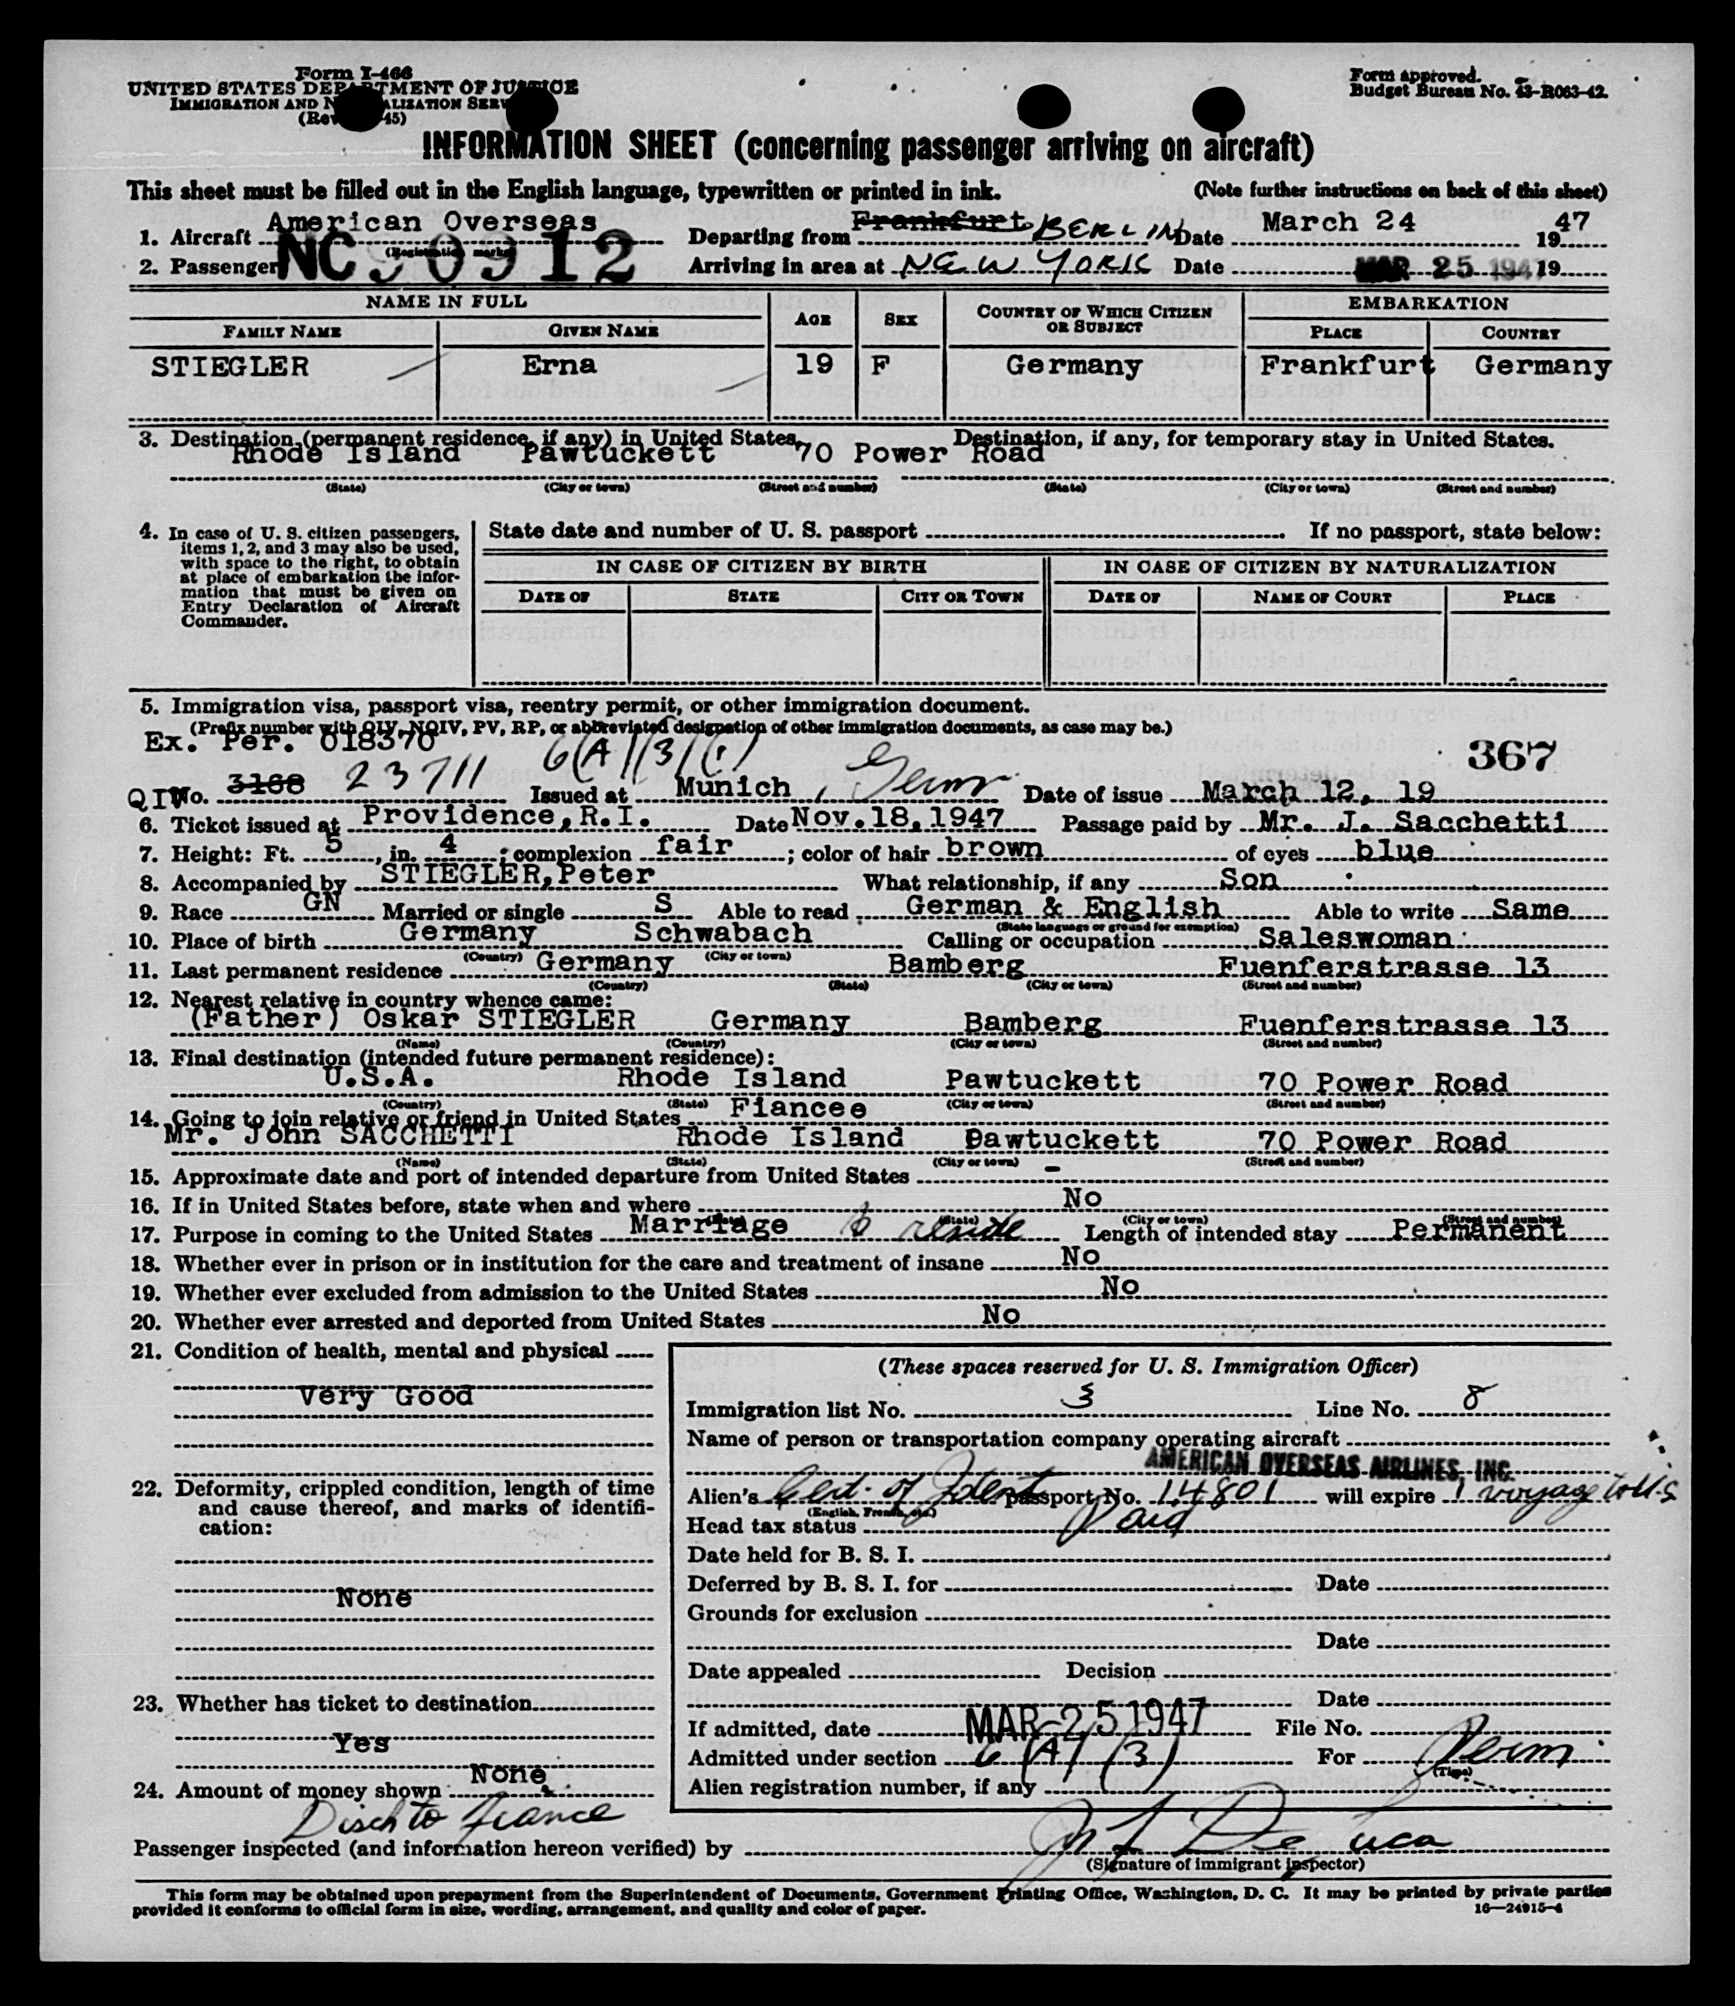 Form I-466
UNITED STATES DEPARTMENT OF JUSTICE
IMMIGRATION AND NATURALIZATION SERV
(Rev 45)
Form approved.
Budget Bureau No. 43-R063-42.
INFORMATION SHEET (concerning passenger arriving on aircraft)
This sheet must be filled out in the English language, typewritten or printed in ink. (Note further instructions on back of this sheet)
1. Aircraft American Overseas Departing from Frankfurt BERLIN Date March 24 1947
(Registration marks)
2. Passenger NC 90912 Arriving in area at NEW YORK Date MAR 25 1947 19
NAME IN FULL AGE SEX COUNTRY OF WHICH CITIZEN OR SUBJECT EMBARKATION
FAMILY NAME GIVEN NAME PLACE COUNTRY
STIEGLER Erna 19 F Germany Frankfurt Germany
3. Destination (permanent residence, if any) in United States. Destination, if any, for temporary stay in United States.
Rhode Island Pawtuckett 70 Power Road
(State) (City or town) (Street and number) (State) (City or town) (Street and number)
4. In case of U. S. citizen passengers, items 1, 2, and 3 may also be used, with space to the right, to obtain at place of embarkation the information that must be given on Entry Declaration of Aircraft Commander.
State date and number of U. S. passport If no passport, state below:
IN CASE OF CITIZEN BY BIRTH IN CASE OF CITIZEN BY NATURALIZATION
DATE OF STATE CITY OR TOWN DATE OF NAME OF COURT PLACE
5. Immigration visa, passport visa, reentry permit, or other immigration document.
(Prefix number with QIV, NQIV, PV, RP, or abbreviated designation of other immigration documents, as case may be.)
Ex. Per. 018370 6(A)(3)(1) 367
QIV No. 3168 23711 Issued at Munich, Germ Date of issue March 12, 19
6. Ticket issued at Providence, R.I. Date Nov.18, 1947 Passage paid by Mr. J. Sacchetti
7. Height: Ft. 5, in. 4; complexion fair; color of hair brown of eyes blue
8. Accompanied by STIEGLER, Peter What relationship, if any Son
9. Race GN Married or single S Able to read German & English Able to write Same
(State language or ground for exemption)
10. Place of birth Germany Schwabach Calling or occupation Saleswoman
(Country) (City or town)
11. Last permanent residence Germany Bamberg Fuenferstrasse 13
(Country) (State) (City or town) (Street and number)
12. Nearest relative in country whence came:
(Father) Oskar STIEGLER Germany Bamberg Fuenferstrasse 13
(Name) (Country) (City or town) (Street and number)
13. Final destination (intended future permanent residence):
U.S.A. Rhode Island Pawtuckett 70 Power Road
(Country) (State) (City or town) (Street and number)
14. Going to join relative or friend in United States Fiancee
Mr. John SACCHETTI Rhode Island Pawtuckett 70 Power Road
(Name) (State) (City or town) (Street and number)
15. Approximate date and port of intended departure from United States -
16. If in United States before, state when and where No
(State) (City or town) (Street and number)
17. Purpose in coming to the United States Marriage to reside Length of intended stay Permanent
18. Whether ever in prison or in institution for the care and treatment of insane No
19. Whether ever excluded from admission to the United States No
20. Whether ever arrested and deported from United States No
21. Condition of health, mental and physical
Very Good
22. Deformity, crippled condition, length of time and cause thereof, and marks of identification:
None
23. Whether has ticket to destination
Yes
24. Amount of money shown None
Disch to fiance
(These spaces reserved for U. S. Immigration Officer)
Immigration list No. 3 Line No. 8
Name of person or transportation company operating aircraft
AMERICAN OVERSEAS AIRLINES, INC.
Alien's Cert. of Ident passport No. 14801 will expire 1 voyage to U.S
(English, French, etc.)
Head tax status Paid
Date held for B. S. I.
Deferred by B. S. I. for Date
Grounds for exclusion
Date
Date appealed Decision
Date
If admitted, date MAR 25 1947 File No.
Admitted under section 6(A)(3) For Perm
(Time)
Alien registration number, if any
Passenger inspected (and information hereon verified) by De Luca
(Signature of immigrant inspector)
This form may be obtained upon prepayment from the Superintendent of Documents, Government Printing Office, Washington, D. C. It may be printed by private parties
provided it conforms to official form in size, wording, arrangement, and quality and color of paper. 16—24915-4